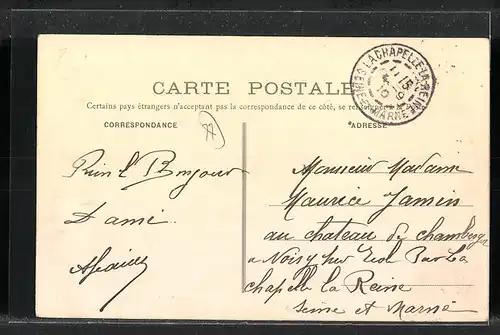 LA CHAPELLE-LA-REINE
SEINE-ET-MARNE
CARTE POSTALE
Certains pays étrangers n'acceptant pas la correspondance de ce côté, se
CORRESPONDANCE
ADRESSE
Bonjour
D'ami
Monsieur Madame
Maurice Jamin
au chateau de Chambergo
a Noisy sur Ecol Par La
chapelle la Reine
Seine et Marne